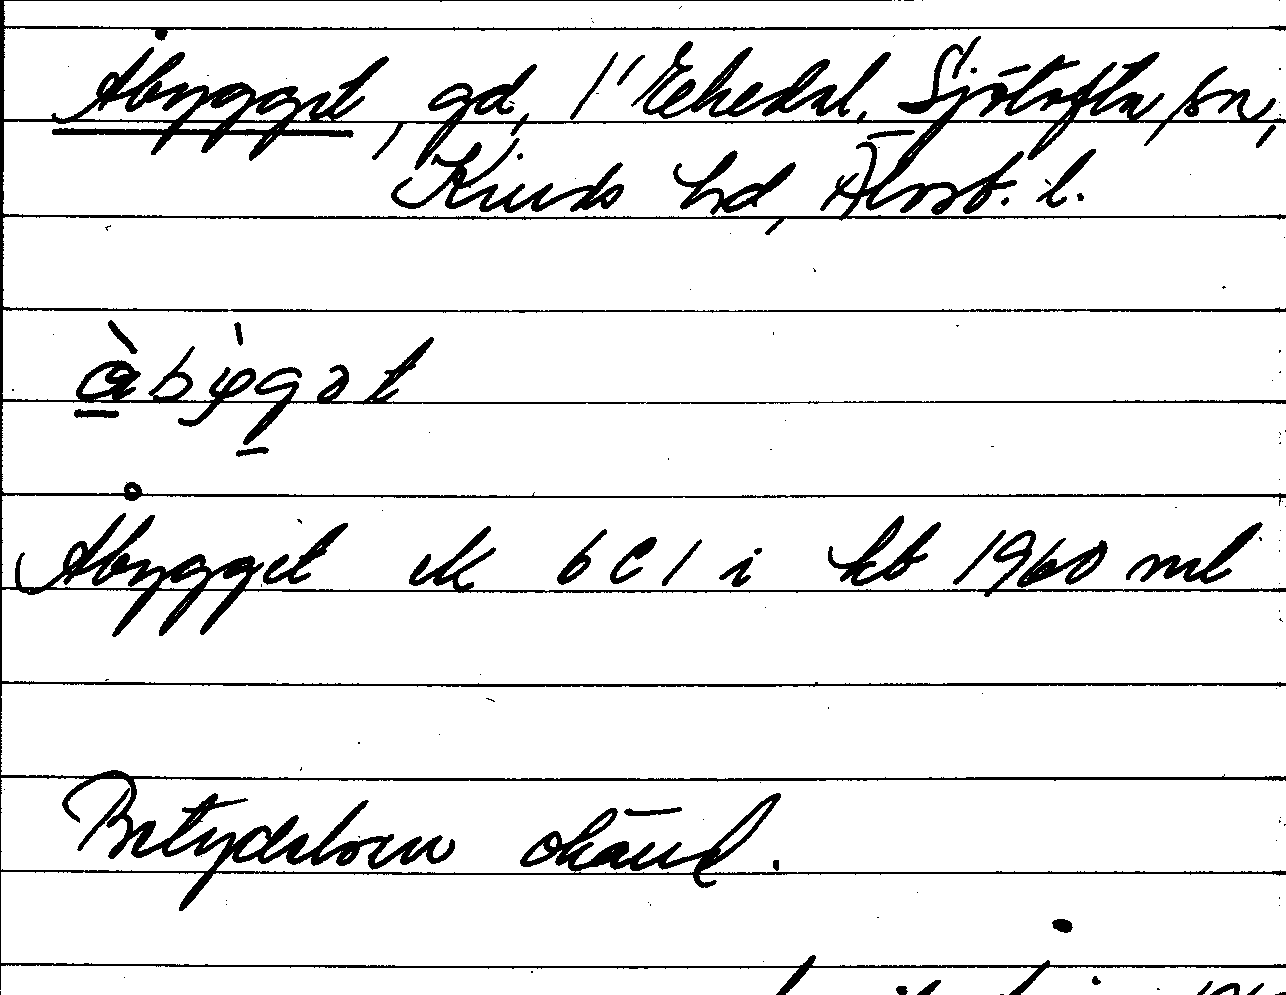 Åbygget, gd, 1" Ekedal, Sjötofta sn,
Kinds hd, Älvsb. l.
åbygət
Åbygget ek 6C1 i kb 1960 ml
Betydelsen okänd.